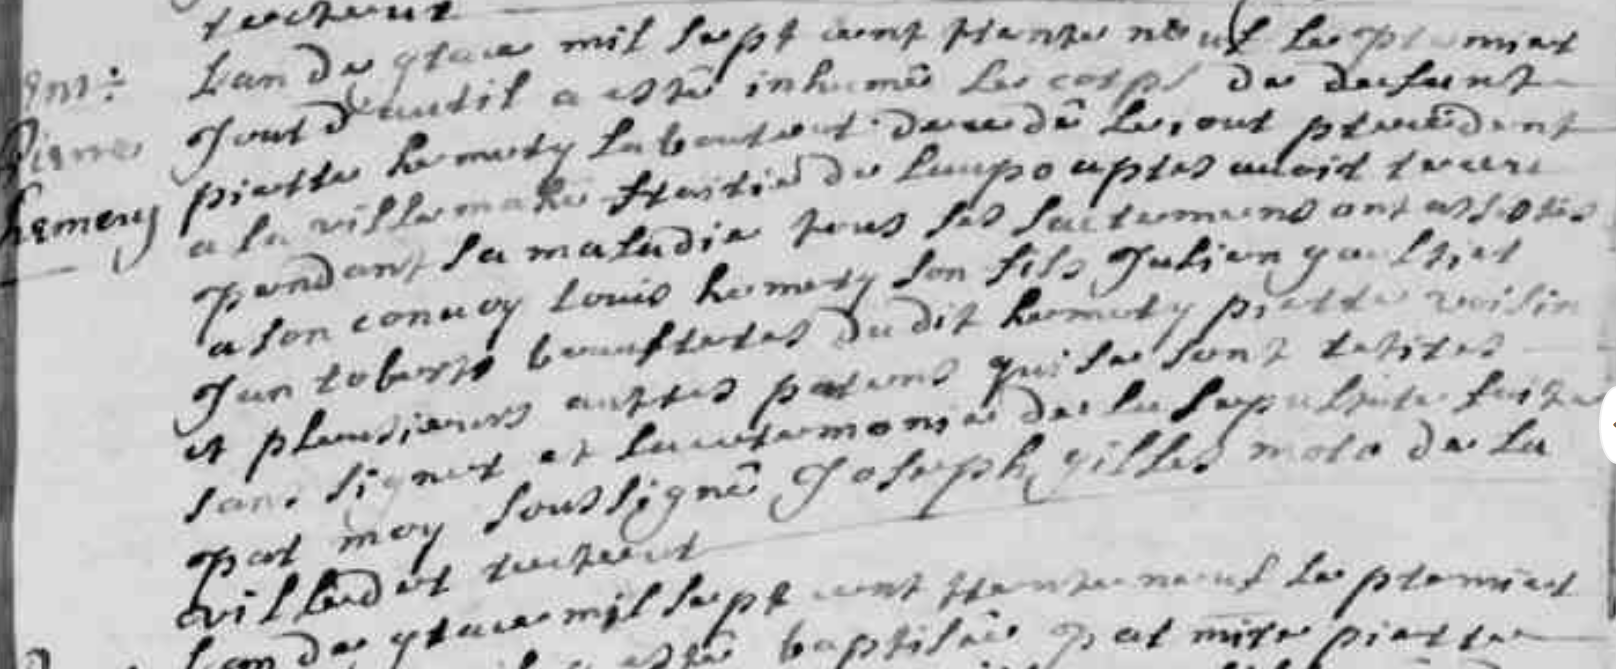 recteur
Lan de grace mil sept cent trente neuf le premier
Ent:
jour d'avril a esté inhumé le corps de defunt
Pierre
pierre hemery laboureur decedé le jour precedent
hemery
a la ville mahé de apres avoir receu
pendant sa maladie tous ses sacremens ont assistés
a son convoy Louis hemery son fils Julien gaultier
Jan roberts beaufreres du dit hemery pierre voisin
et plusieurs autres parens qui se sont retirés
sans signer et la ceremonie de la sepulture faite
par moy soussigné Joseph gilles molo de la
villeder recteur
Lan de grace mil sept cent trente neuf le premier
a esté baptisée par mire pierre